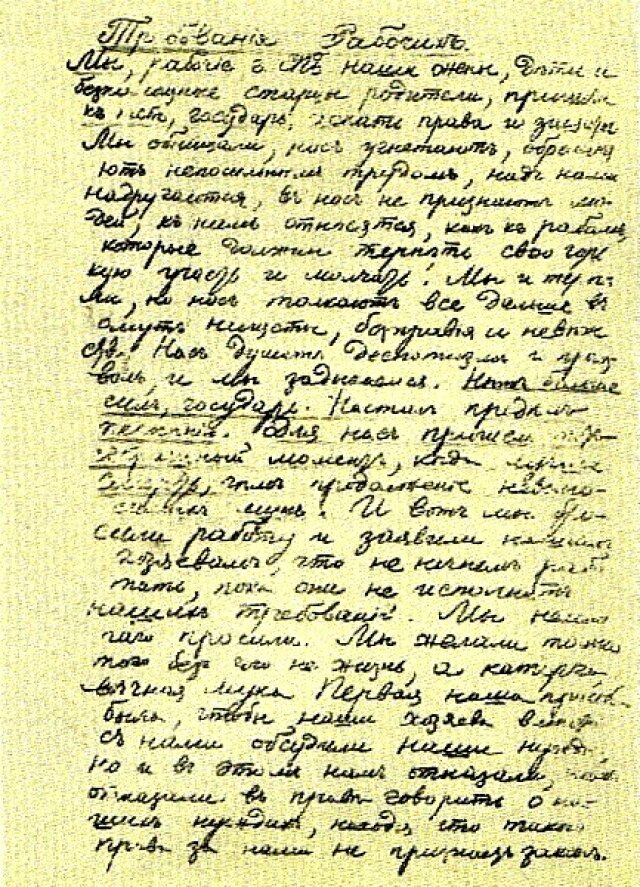 Требованія Рабочихъ.
Мы, рабочіе г. СПБ наши жены, дѣти и
старцы родители, пришли
къ государь, искать права и защиты
Мы обнищали, насъ угнетаютъ, обремен
яютъ непосильнымъ трудомъ, надъ нами
надругаются, въ насъ не признаютъ лю
дей, къ намъ относятся, какъ къ рабамъ,
которые должны терпѣть свою горь
кую участь и молчать! Мы и терпѣ
ли, но насъ толкаютъ все дальше въ
омутъ нищеты, безправія и невѣже
ства. Насъ душитъ деспотизмъ и произ
волъ, и мы задыхаемся. Нѣтъ больше
силъ, государь. Насталъ предѣлъ
терпѣнію. Для насъ пришелъ тотъ
страшный моментъ, когда лучше
смерть, чѣмъ продолженіе невыно
симыхъ мукъ! И вотъ мы бро
сили работу и заявили нашимъ
хозяевамъ, что не начнемъ рабо
тать, пока они не исполнятъ
нашихъ требованій. Мы немно
гаго просили. Мы желали только
того безъ чего не жизнь, а каторга
вѣчная мука Первая наша просьба
была, чтобы наши хозяева вмѣстѣ
съ нами обсудили наши нужды,
Но и въ этомъ намъ отказали,
отказали въ правѣ говорить о на
шихъ нуждахъ, находя что такого
права за нами не признаетъ законъ.